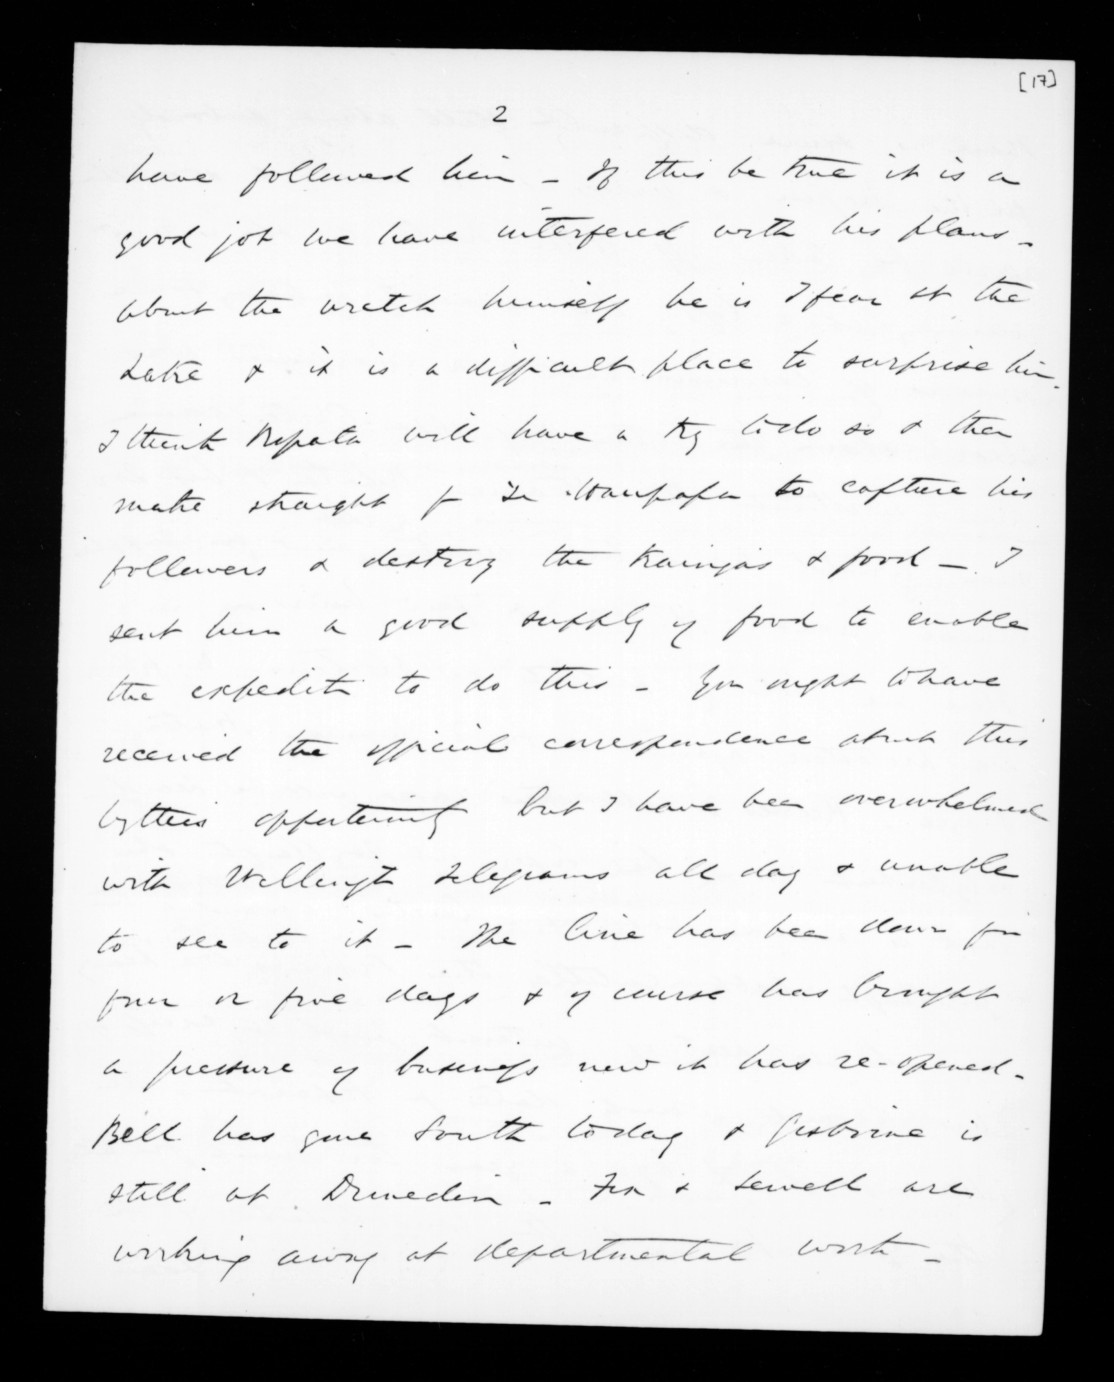 [17]
2
have followed him - If this be true it is a
good job we have interfered with his plans -
about the wretch himself he is I fear at the
Lake & it is a difficult place to surprise him.
I think Ropata will have a try to do so & then
make straight for Te Waupapa to capture his
followers & destroy the Kaingas & food - I
sent him a good supply of food to enable
the expeditn to do this - You ought to have
received the official correspondence about this
by this opportunity but I have been overwhelmed
with Wellingtn telegrams all day & unable
to see to it - The line has been down for
four or five days & of course has brought
a pressure of business now it has re-opened -
Bell has gone South today & Gisborne is
still at Dunedin - Fox & Sewell are
working away at departmental work -